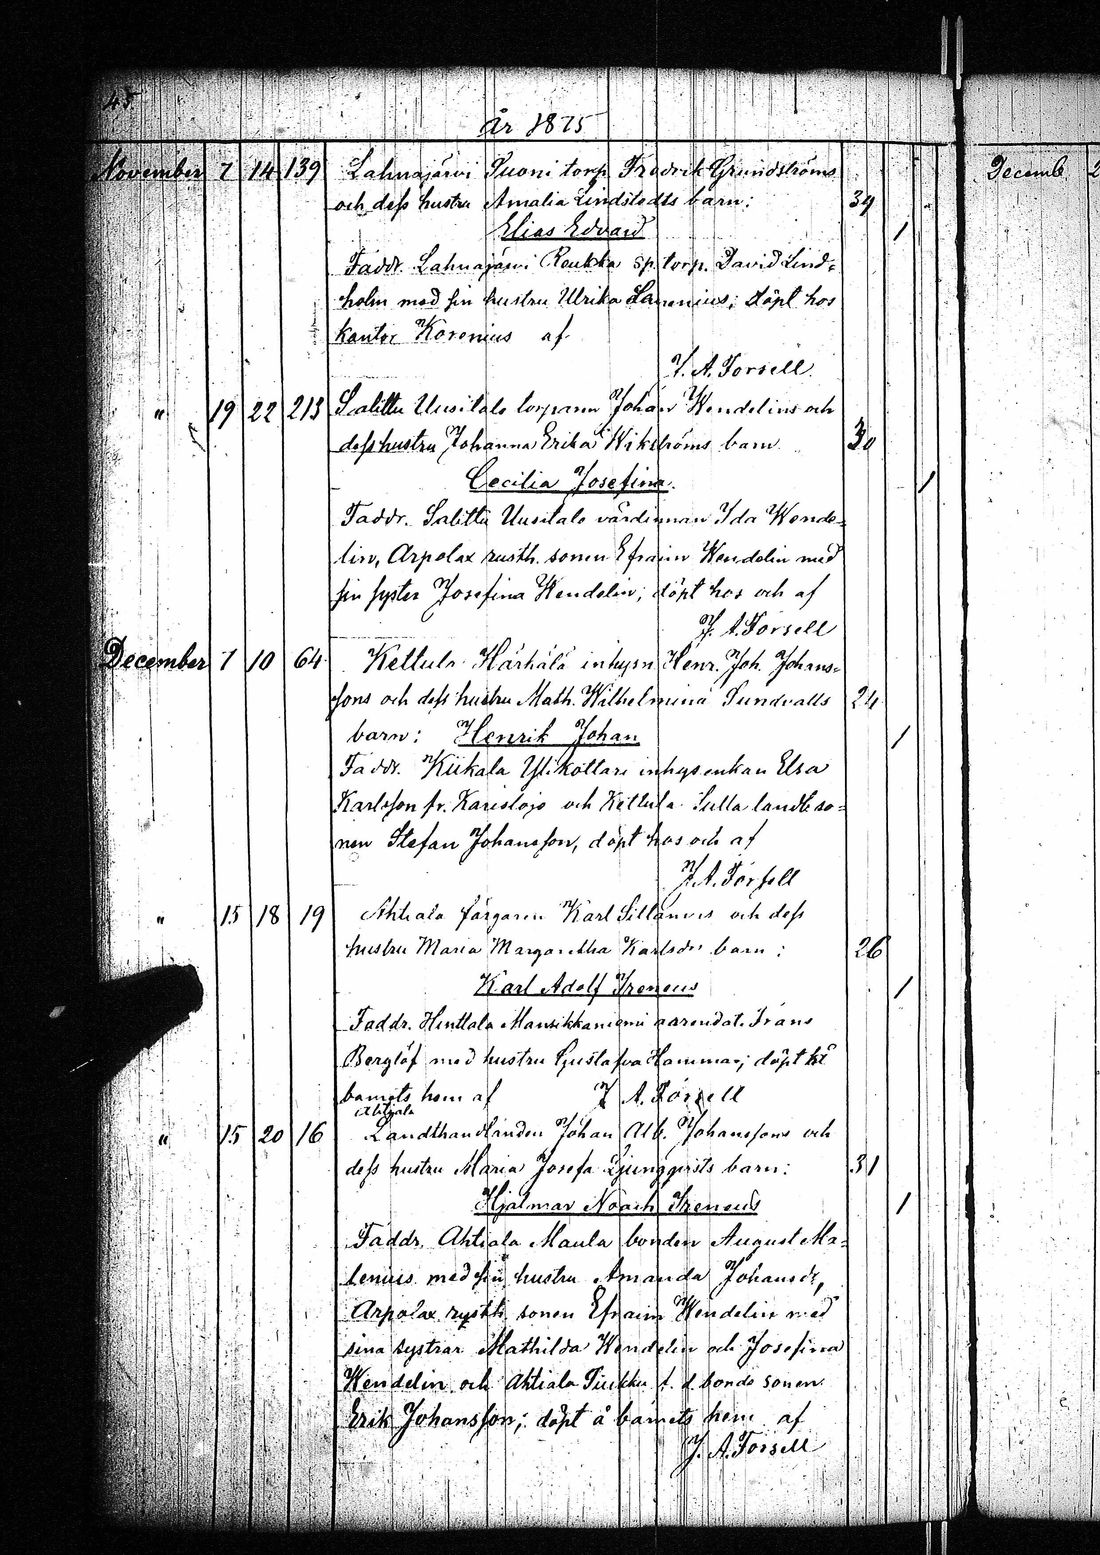 45
År 1875
November 7 14 139 Lahnajärvi Suoni torp. Fredrik Grundströms
och dess hustru Amalia Lindstedts barn: 39
Elias Edvard 1
Faddr. Lahnajärvi Roukka sp. torp. David Lind-
holm med sin hustru Ulrika Lavonius; döpt hos
kantor Korenius af
J. A. Forsell
" 19 22 213 Salittu Uusitalo torparen Johan Wendelins och
dess hustru Johanna Erika Wikströms barn 30
Cecilia Josefina. 1
Faddr. Salittu Uusitalo värdinnan Ida Wende-
lin, Arpolax rusth. sonen Efraim Wendelin med
sin syster Josefina Wendelin; döpt hos och af
J. A. Forsell
December 7 10 64 Kettula Härhälä inhysn Henr. Joh. Johans-
sons och dess hustru Math. Wilhelmina Sundvalls 24
barn: Henrik Johan 1
Faddr. Kiikala Ylikottari inhysenkan Elsa
Karlsson fr. Karislojo och Kettula Sulla landbso-
nen Stefan Johansson, döpt hos och af
J. A. Forsell
" 15 18 19 Ahtiala färgaren Karl Sillanders och dess
hustru Maria Margaretha Karlsdrs barn: 26
Karl Adolf Ireneus 1
Faddr. Hinttala Mansikkaniemi aarendat. Frans
Berglöf med hustru Gustafva Hammar; döpt
barnets hem af J. A. Forsell
Ahtiala
" 15 20 16 Landthandlanden Johan Alb. Johanssons och
dess hustru Maria Josefa Ljungqvists barn: 31
Hjalmar Noach Ireneus 1
Faddr. Ahtiala Maula bonden August Ma-
lenius med sin hustru Amanda Johansdr,
Arpolax rusth. sonen Efraim Wendelin med
sina systrar Mathilda Wendelin och Josefina
Wendelin och Ahtiala Tuikku f. d. bonde sonen
Erik Johansson; döpt å barnets hem af
J. A. Forsell
Decemb. 2